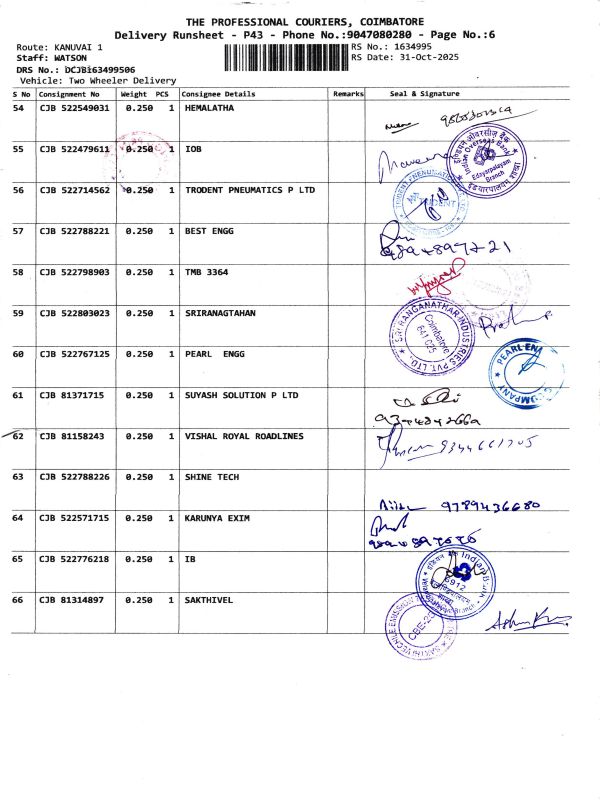 THE PROFESSIONAL COURIERS, COIMBATORE
Delivery Runsheet - P43 - Phone No.:9047080280 - Page No.:6
Route: KANUVAI 1
RS No.: 1634995
Staff: WATSON
RS Date: 31-Oct-2025
DRS No.: DCJB163499506
Vehicle: Two Wheeler Delivery
S No Consignment No Weight PCS Consignee Details Remarks Seal & Signature
54 CJB 522549031 0.250 1 HEMALATHA
55 CJB 522479611 0.250 1 IOB
इण्डियन ओवरसीज़ बैंक
Indian Overseas Bank
Edayarpalayam
Branch
56 CJB 522714562 0.250 1 TRODENT PNEUMATICS P LTD
TRIDENT
57 CJB 522788221 0.250 1 BEST ENGG
58 CJB 522798903 0.250 1 TMB 3364
59 CJB 522803023 0.250 1 SRIRANGATHAN
SRI RANGANATHAR INDUSTRIES PVT. LTD.
Coimbatore
641 025
60 CJB 522767125 0.250 1 PEARL ENGG
PEARL ENG
COMPANY
61 CJB 81371715 0.250 1 SUYASH SOLUTION P LTD
62 CJB 81158243 0.250 1 VISHAL ROYAL ROADLINES
9344661705
63 CJB 522788226 0.250 1 SHINE TECH
9789436680
64 CJB 522571715 0.250 1 KARUNYA EXIM
65 CJB 522776218 0.250 1 IB
Indian Bank
66 CJB 81314897 0.250 1 SAKTHIVEL